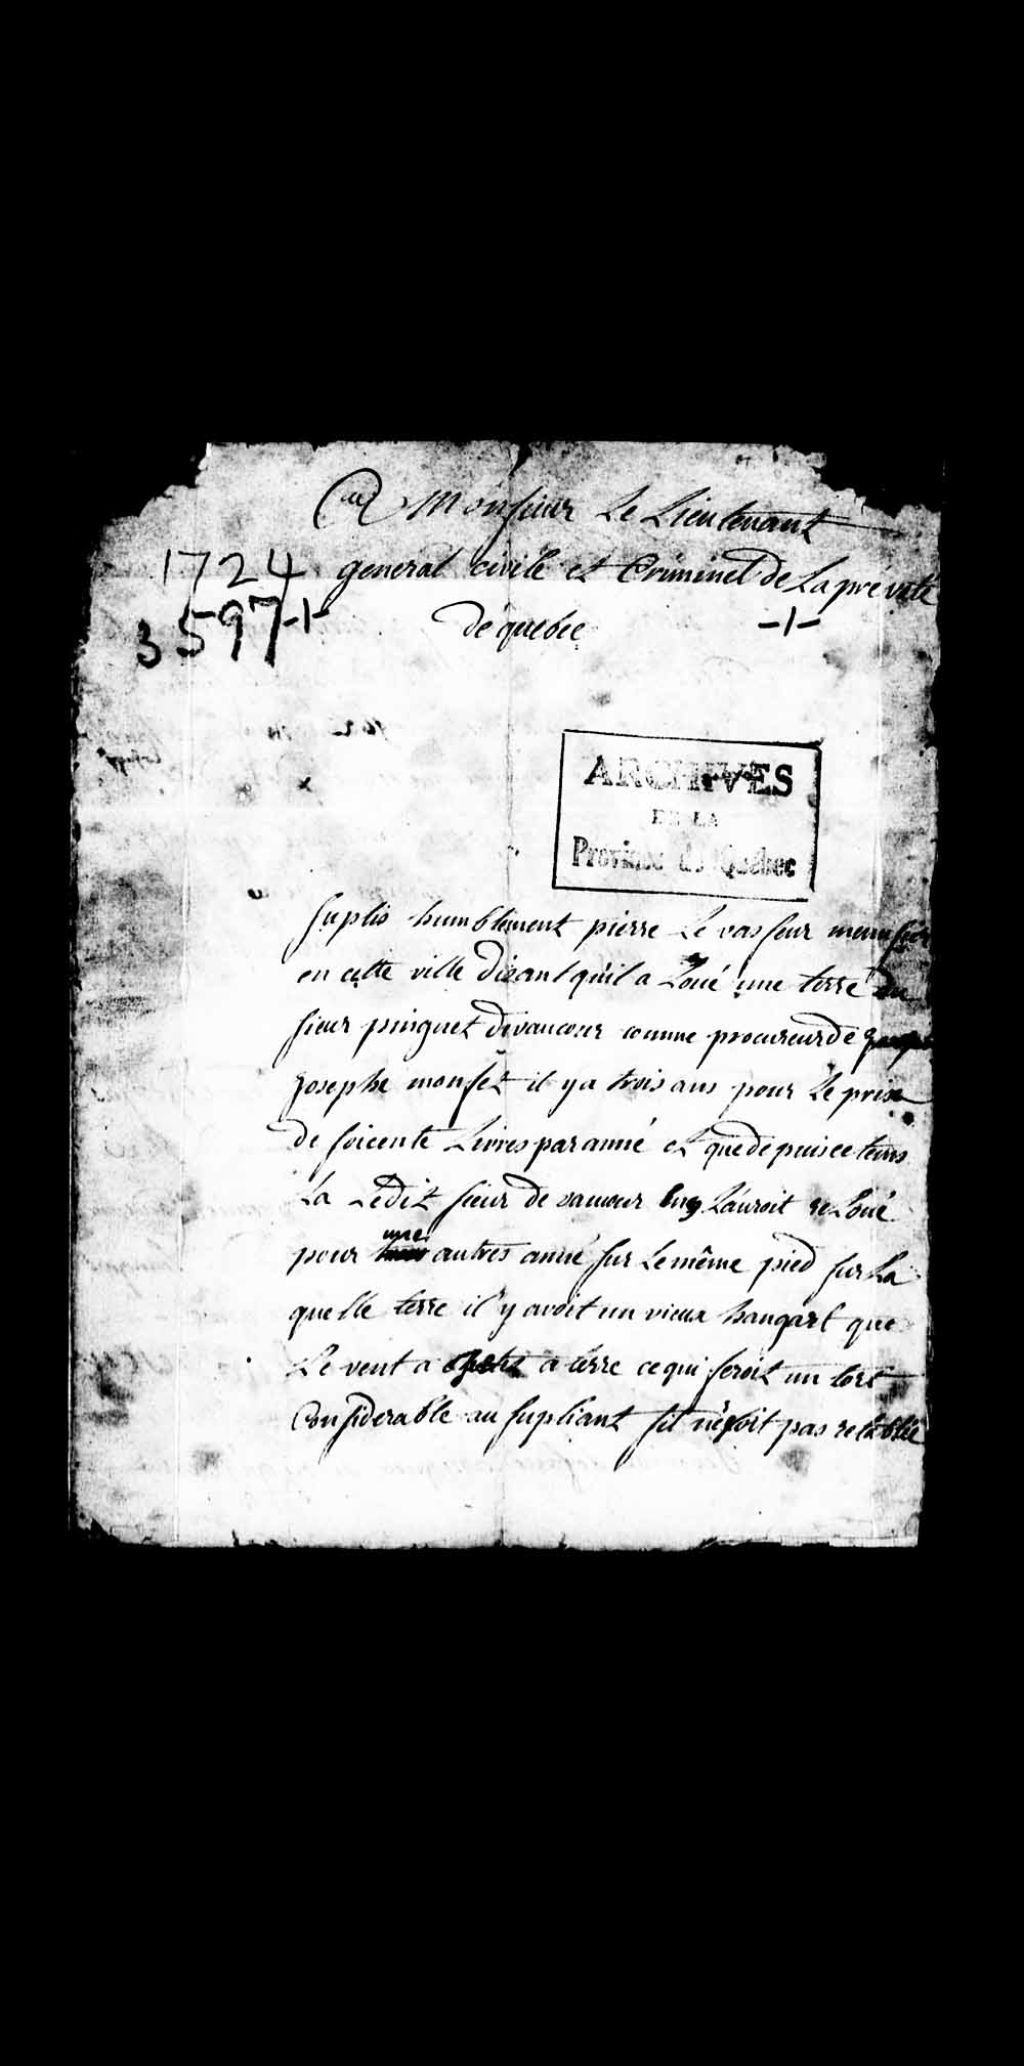 A Monsieur Le Lieutenant
1724 general civile et Criminel de La prevoté
3597-1- de quebec -1-
ARCHIVES
DE LA
Province de Québec
suplie humblement pierre Le vasseur menusier
en cette ville disant quil a Loué une terre du
sieur pinguet de vaucour comme procureur de
Josephe monfet il y a trois ans pour Le prix
de soicente Livres par anné et que depuis ce tems
La Ledit sieur de vaucour Luy L'auroit reLoué
pour une autres anné sur Le même pied sur La
quelle terre il y avoit un vieux hangart que
Le vent a a terre ce qui feroit un tort
Considerable au supliant sil nesoit pas retablie